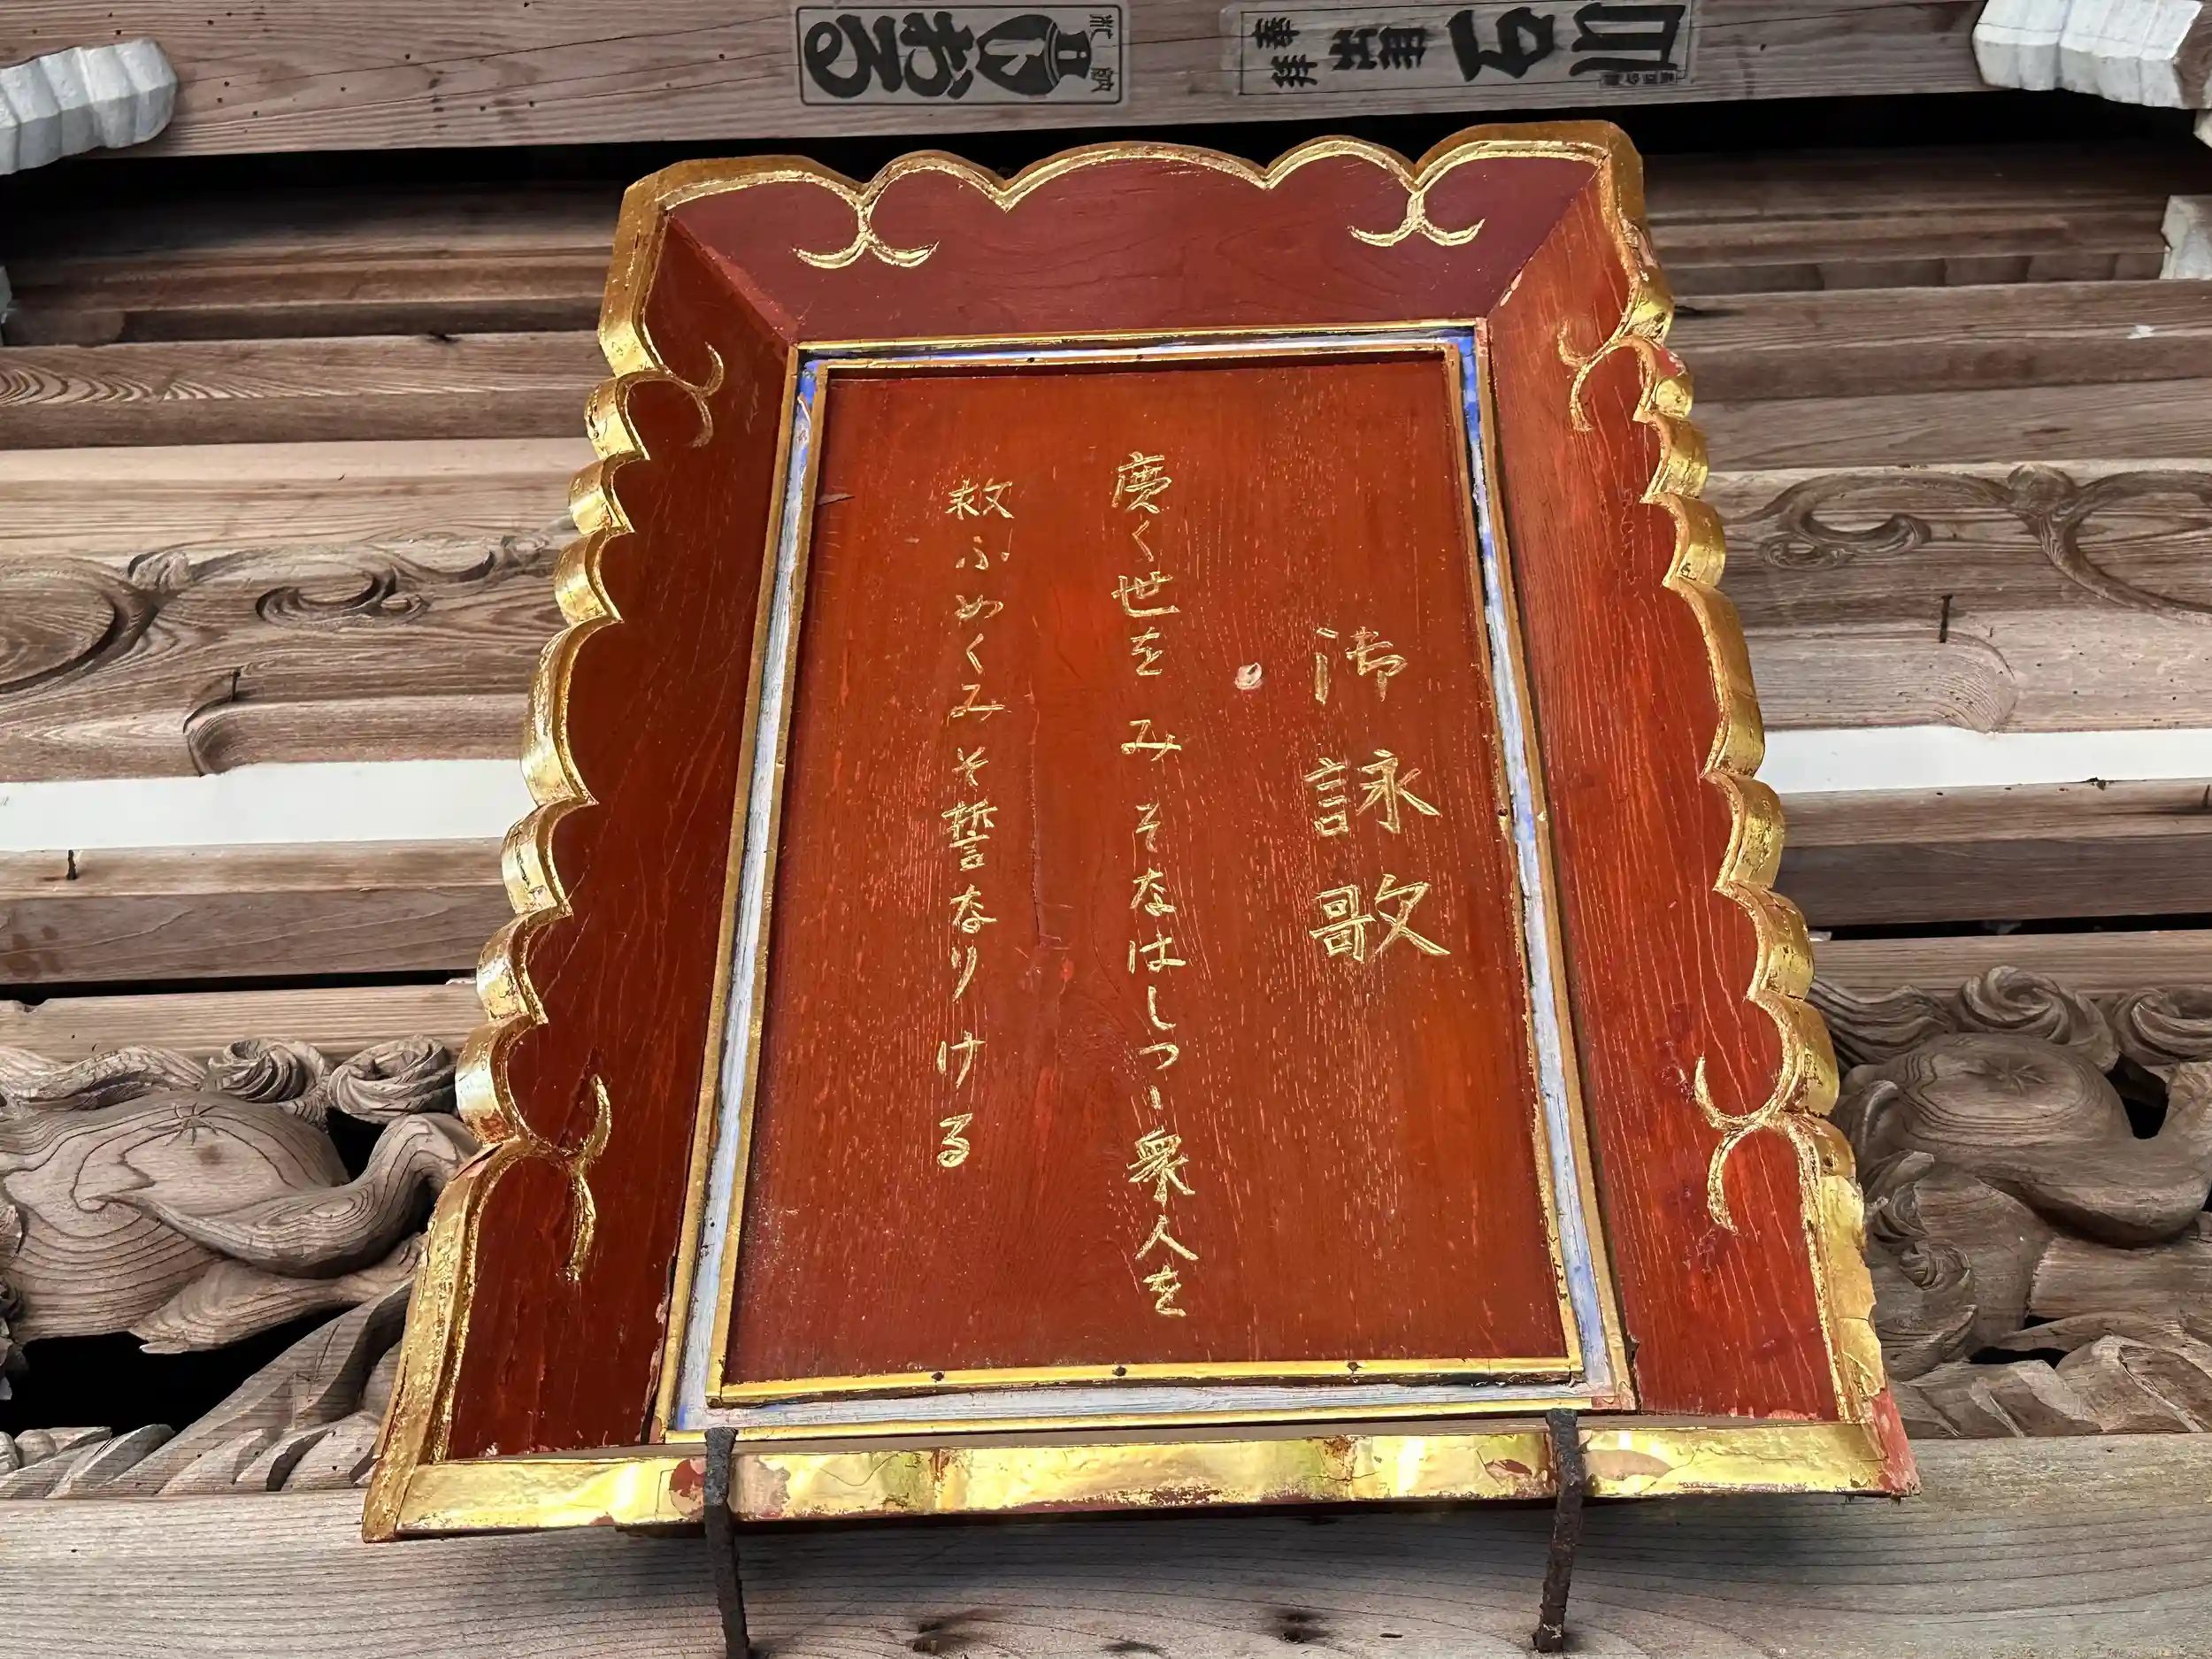 御詠歌
廣く世を みそなはしつゝ衆人を
救ふめくみそ誓なりける